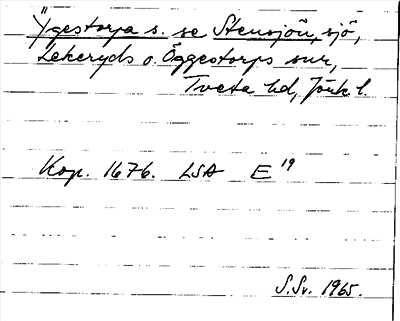 Ÿgestorpa s. se Stensjön, sjö,
Lekeryds o. Öggestorps snr,
Tveta hd, Jönk l.
Kop. 1676. LSA E 19
S.Sv. 1965.